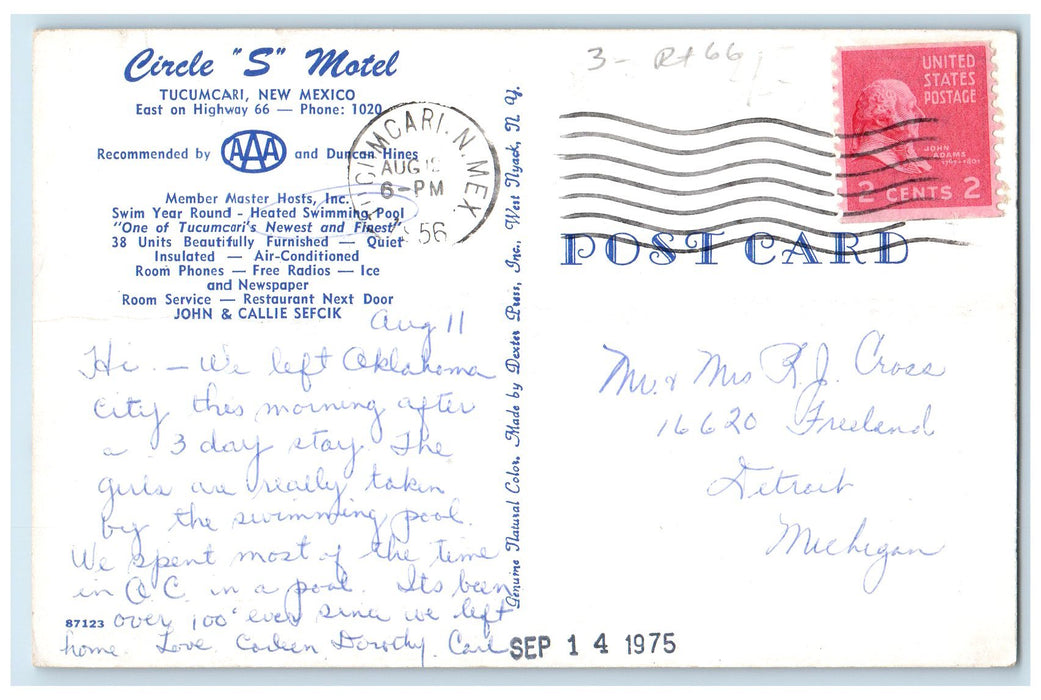 Circle "S" Motel
TUCUMCARI, NEW MEXICO
East on Highway 66 — Phone: 1020
Recommended by AAA and Duncan Hines
Member Master Hosts, Inc.
Swim Year Round - Heated Swimming Pool
"One of Tucumcari's Newest and Finest"
38 Units Beautifully Furnished — Quiet
Insulated — Air-Conditioned
Room Phones — Free Radios — Ice
and Newspaper
Room Service — Restaurant Next Door
JOHN & CALLIE SEFCIK
TUCUMCARI. N. MEX.
AUG
6-PM
56
Aug 11
Hi. — We left Oklahoma
City this morning after
a 3 day stay. The
girls are really taken
by the swimming pool.
We spent most of the time
in O.C. in a pool. Its been
over 100° ever since we left
home. Love Dorothy, Carl
87123
Genuine Natural Color. Made by Dexter Press, Inc., West Nyack, N. Y.
SEP 14 1975
3 - Rt 66
UNITED
STATES
POSTAGE
JOHN
ADAMS
1797-1801
2 CENTS 2
POST CARD
Mr. & Mrs R. J. Cross
16620 Freeland
Detroit
Michigan